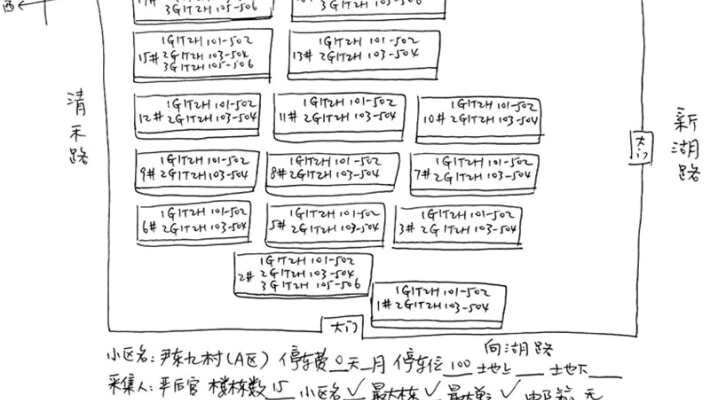 西
3G1T2H 105-506
3G1T2H 103-506
1G1T2H 101-502
15# 2G1T2H 103-504
3G1T2H 105-506
1G1T2H 101-502
13# 2G1T2H 103-504
清禾路
1G1T2H 101-502
12# 2G1T2H 103-504
1G1T2H 101-502
11# 2G1T2H 103-504
1G1T2H 101-502
10# 2G1T2H 103-504
大门
新湖路
1G1T2H 101-502
9# 2G1T2H 103-504
1G1T2H 101-502
8# 2G1T2H 103-504
1G1T2H 101-502
7# 2G1T2H 103-504
1G1T2H 101-502
6# 2G1T2H 103-504
1G1T2H 101-502
5# 2G1T2H 103-504
1G1T2H 101-502
3# 2G1T2H 103-504
1G1T2H 101-502
2# 2G1T2H 103-504
3G1T2H 105-506
1G1T2H 101-502
1# 2G1T2H 103-504
大门
向湖路
小区名:尹东九村(A区) 停车费 0 天 月 停车位 100 土地上 土地下
采集人: 楼栋数 15 小区名 ✓ 最大栋 ✓ 最大单元 ✓ 元